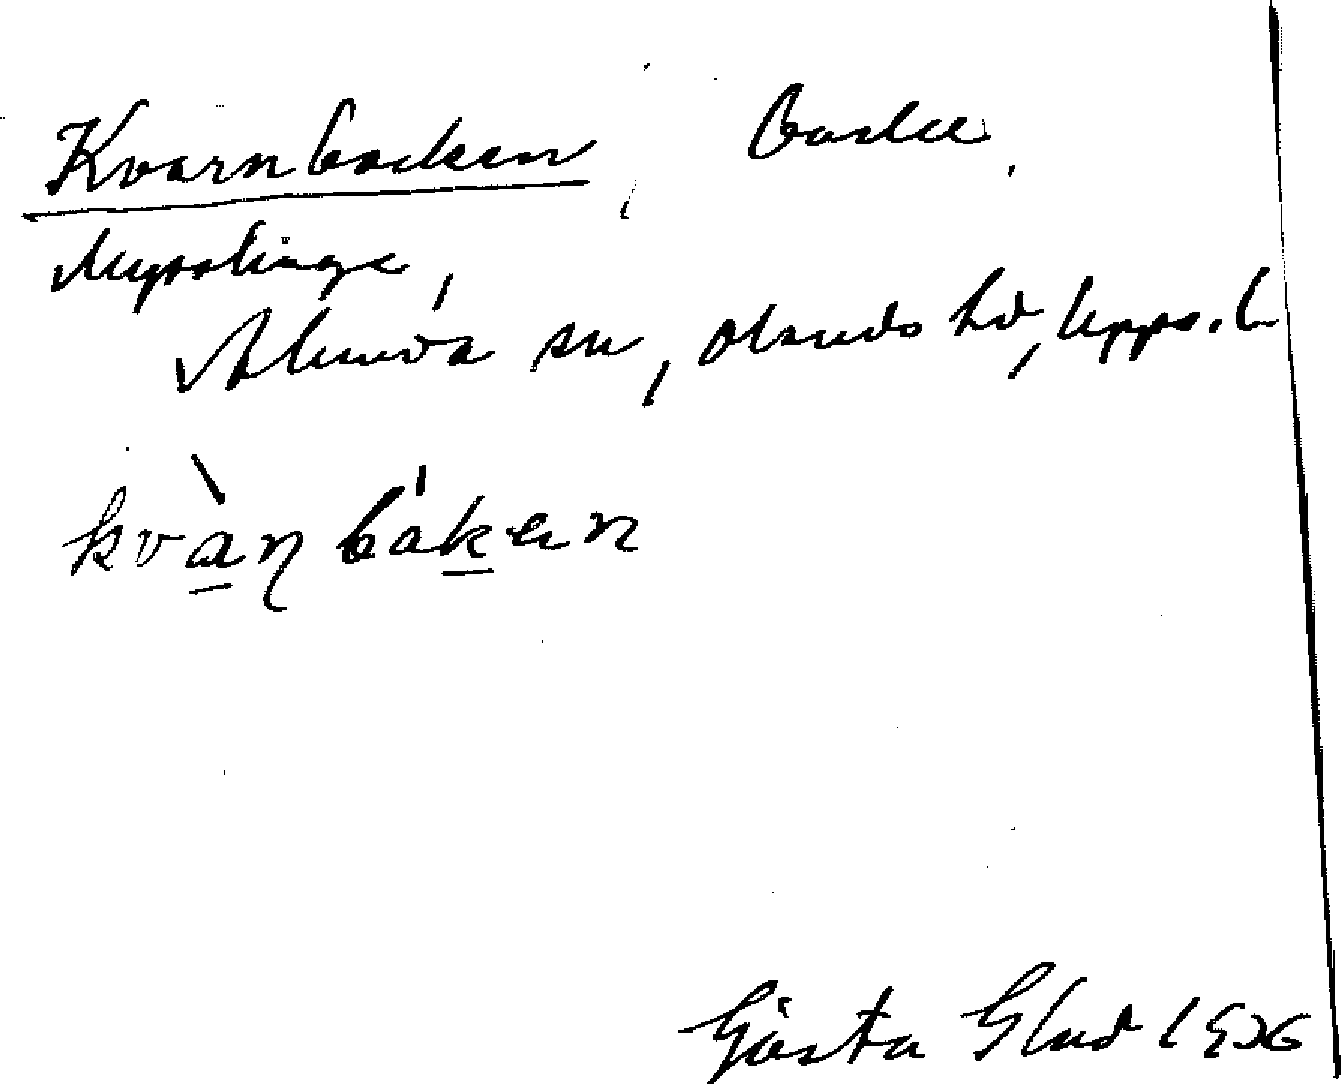 Kvarnbacken, Backe,
Myrslinge,
Alunda sn, Olands hd, Upps. l
kvàṇbáken
Gösta Glad 1926